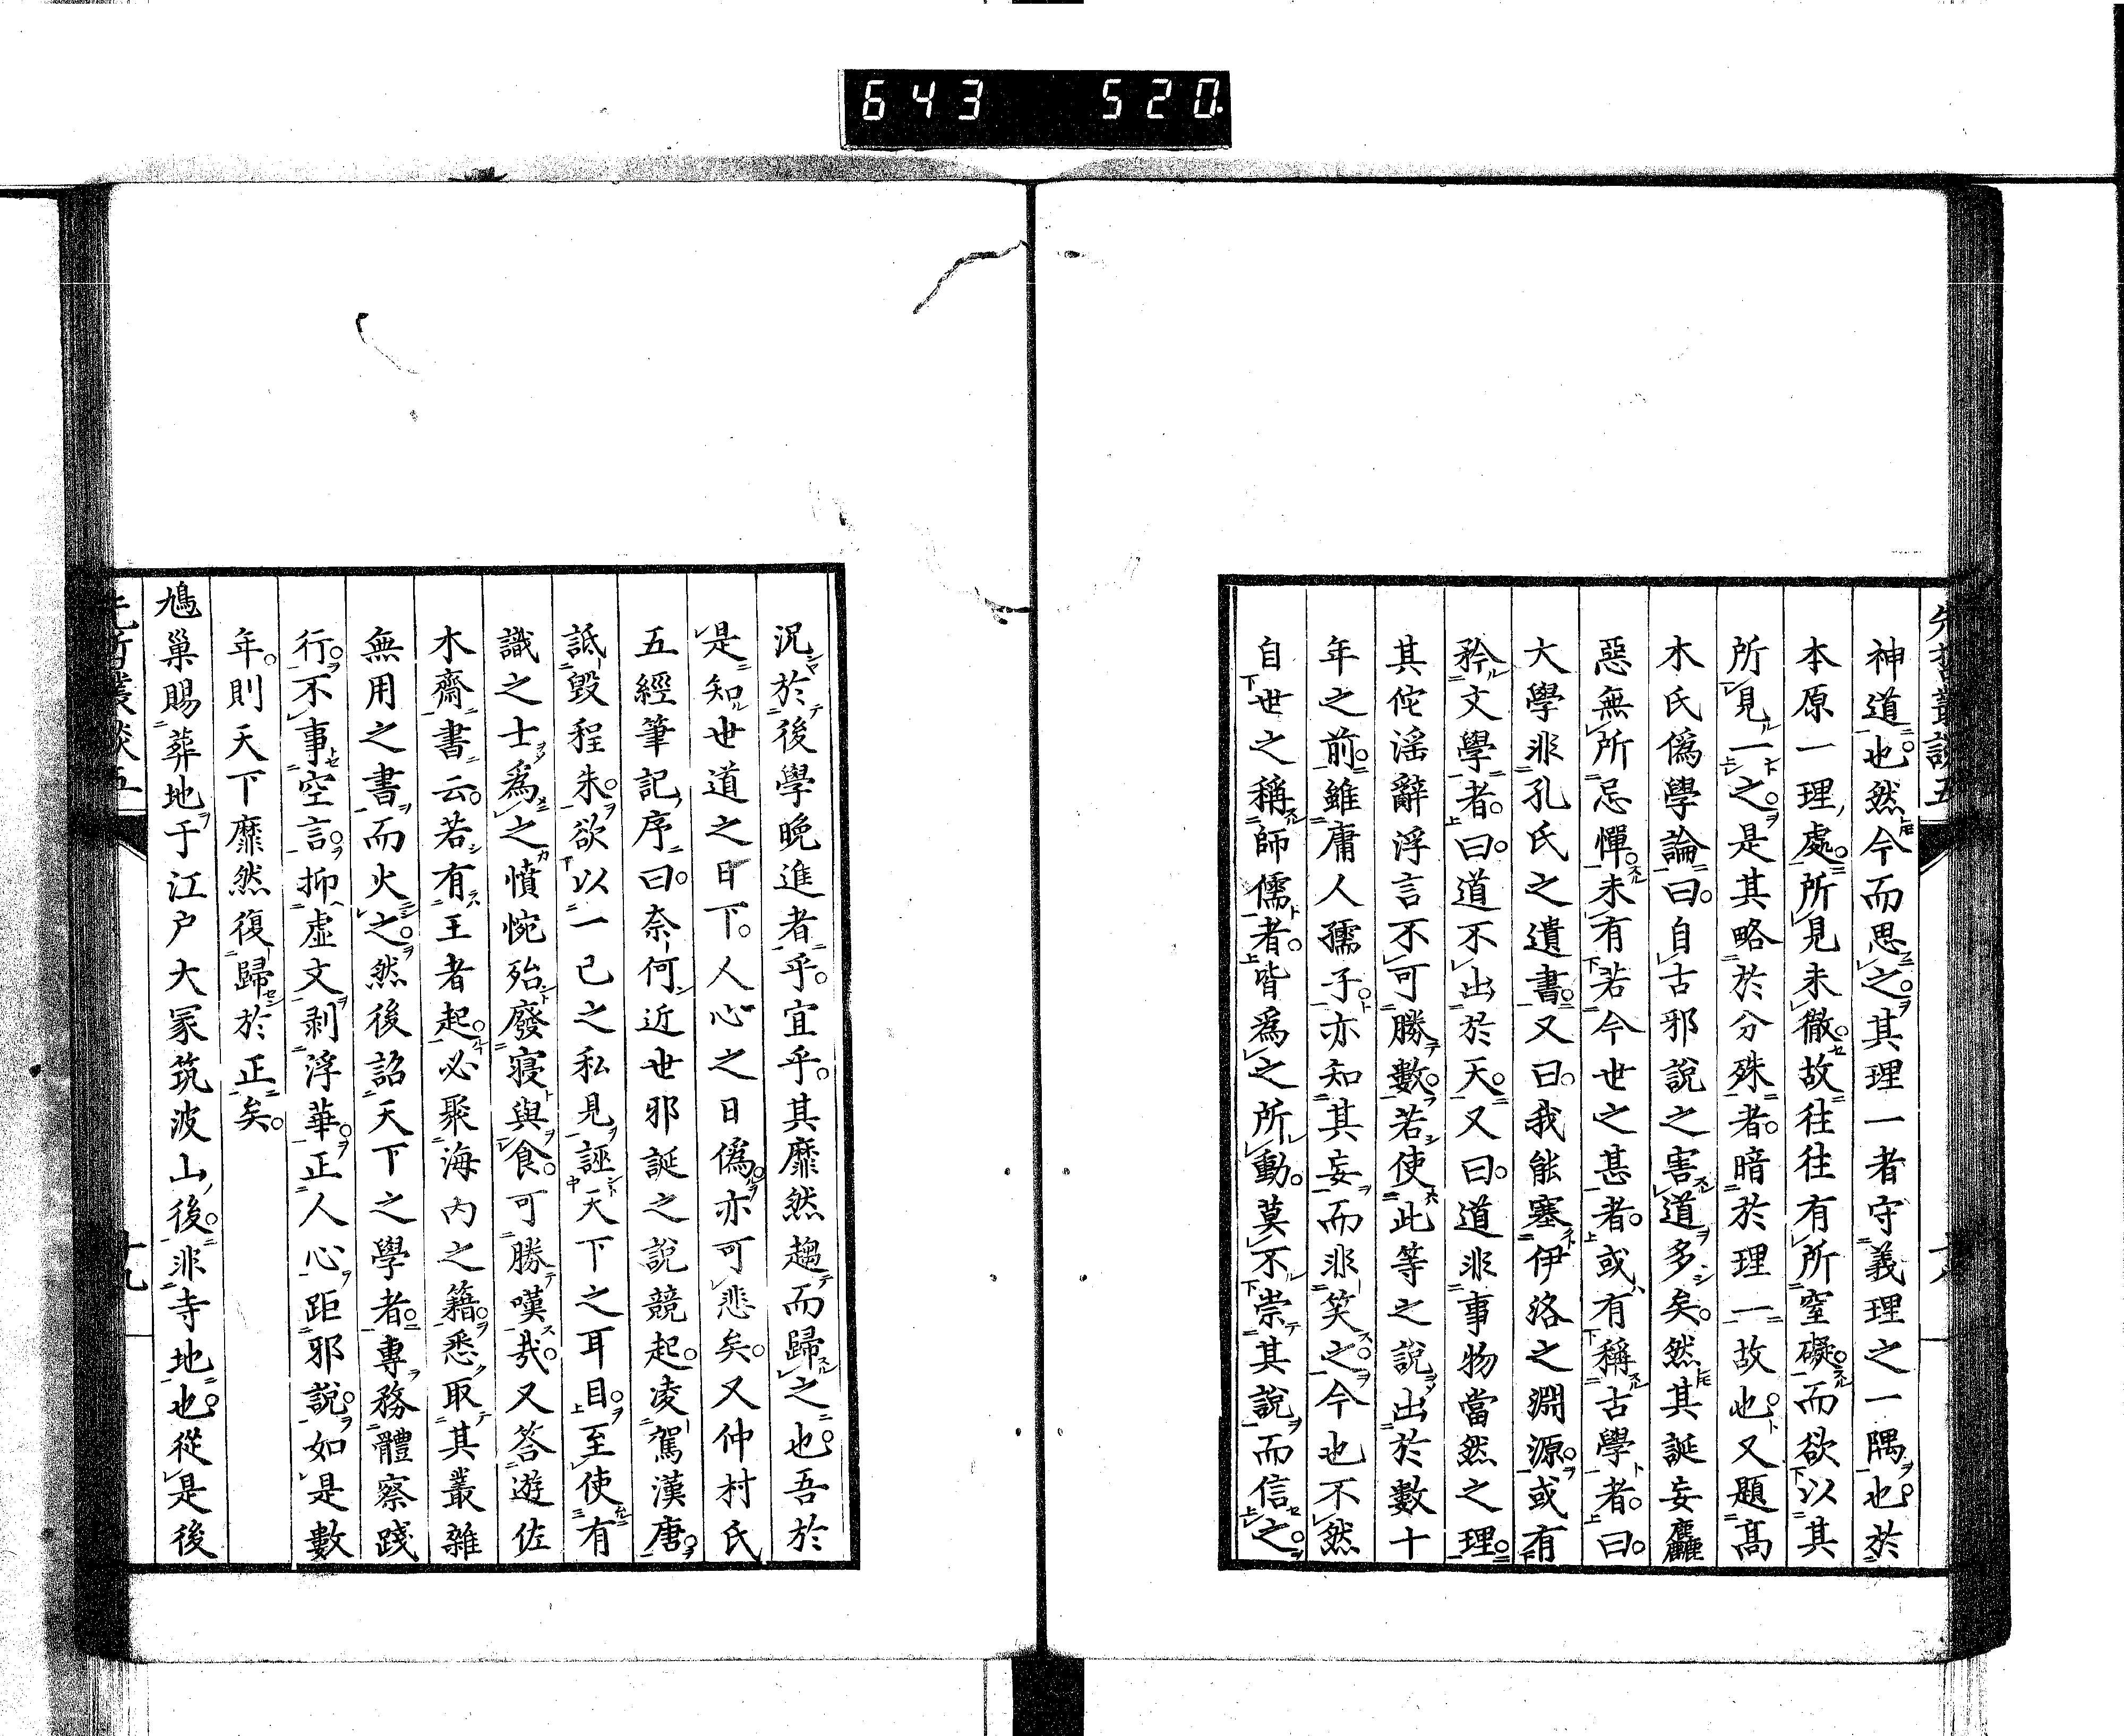 643 520.
神道也。然今而思之。其理一者守義理之一隅也。於
本原一理處。所見未徹。故往往有所窒礙。而欲以其
所見一之。是其略於分殊者。暗於理一故也。又題高
木氏僞學論曰。自古邪說之害道多矣。然其誕妄麤
惡無所忌憚。未有若今世之甚者。或有稱古學者。曰。
大學非孔氏之遺書。又曰。我能塞伊洛之淵源。或有
矜文學者。曰。道不出於天。又曰。道非事物當然之理。
其佗淫辭浮言不可勝數。若使此等之說出於數十
年之前。雖庸人孺子。亦知其妄而非笑之。今也不然
自世之稱師儒者。皆爲之所動。莫不崇其說而信之。
況於後學晚進者乎。宜乎。其靡然趨而歸之也。吾於
是知世道之日下。人心之日僞。亦可悲矣。又仲村氏
五經筆記序曰。奈何近世邪誕之說競起。凌駕漢唐。
詆毀程朱。欲以一己之私見誣天下之耳目。至使有
識之士爲之憤惋殆廢寢與食。可勝嘆哉。又答遊佐
木齋書云。若有王者起。必聚海內之籍。悉取其叢雜
無用之書而火之。然後詔天下之學者。專務體察踐
行。不事空言。抑虛文剥浮華。正人心距邪說。如是數
年。則天下靡然復歸於正矣。
鳩巢賜葬地于江戶大冢筑波山後。非寺地也。從是後
先哲叢談五
十九